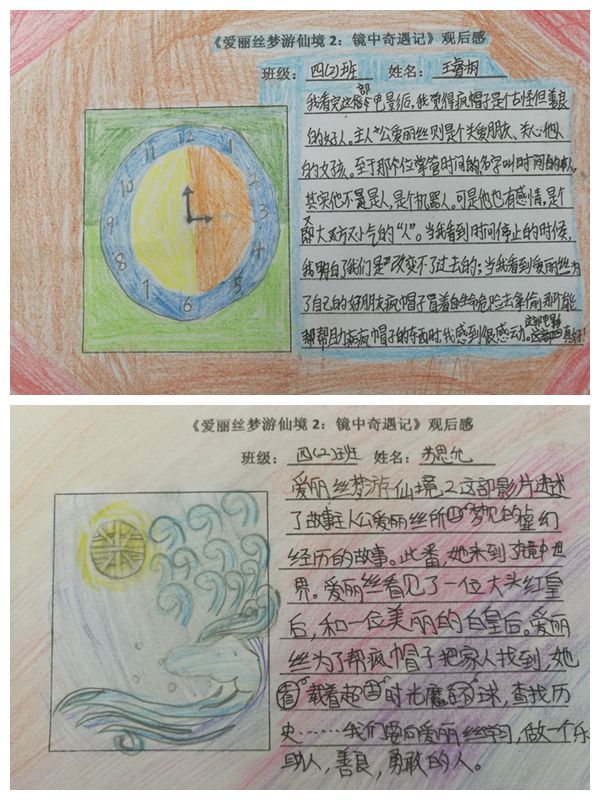 《爱丽丝梦游仙境 2：镜中奇遇记》观后感
班级： 四(2)班 姓名： 王睿桐
12
1
2
3
4
5
6
7
8
9
10
11
我看完这部电影后，我觉得疯帽子是个古怪但善良
的好人。主人公爱丽丝则是个关爱朋友、关心他人
的女孩。至于那个位掌管时间的名字叫时间的
其实他不是人，是个机器人。可是他也有感情，是个
即大方又小气的“人”。当我看到时间停止的时候，
我明白了我们是改变不了过去的；当我看到爱丽丝为
了自己的好朋友疯帽子冒着生命危险去拿偷那可能
帮助疯帽子的东西时我感到很感动。这部电影真好！
《爱丽丝梦游仙境 2：镜中奇遇记》观后感
班级： 四(2)班 姓名： 苏思允
爱丽丝梦游仙境2这部影片述
了故事主人公爱丽丝所梦见的虚幻
经历的故事。此番，她来到了镜中世
界。爱丽丝看见了一位大头红皇
后，和一位美丽的白皇后。爱丽
丝为了帮疯帽子把家人找到，她
载着超时光魔球，查找历
史……我们要向爱丽丝学习，做一个乐
助人，善良，勇敢的人。